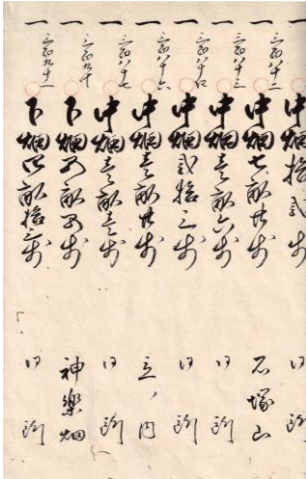 一
中畑拾弐歩
同所
一
三百八十二
中畑七畝廿歩
石塚山
一
三百八十三
中畑壱畝六歩
同所
一
三百八十四
中畑弐拾三歩
同所
一
三百八十六
中畑壱畝廿歩
立ノ内
一
三百八十七
中畑壱畝壱歩
同所
一
三百九十
下畑
神楽畑
一
三百九十一
下畑四畝拾三歩
同所